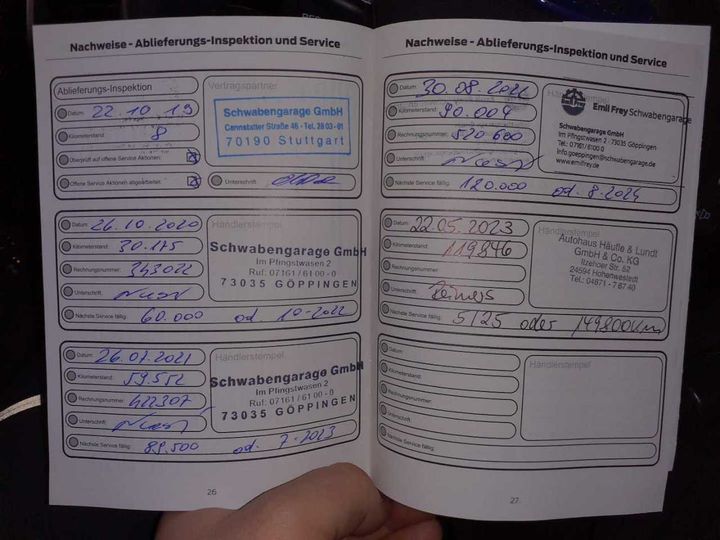 Nachweise - Ablieferungs-Inspektion und Service
Ablieferungs-Inspektion
Datum: 22.10.19
Kilometerstand: 8
Überprüft auf offene Service Aktionen:
Offene Service Aktionen abgearbeitet:
Vertragspartner
Schwabengarage GmbH
Cannstatter Straße 46 - Tel. 28 03 - 01
70190 Stuttgart
Unterschrift:
Datum: 26.10.2020
Kilometerstand: 30.175
Rechnungsnummer: 343022
Unterschrift:
Nächste Service fällig: 60.000 od 10-2022
Händlerstempel
Schwabengarage GmbH
Im Pfingstwasen 2
Ruf: 07161 / 61 00 - 0
73035 GÖPPINGEN
Datum: 26.07.2021
Kilometerstand: 59.552
Rechnungsnummer: 422307
Unterschrift:
Nächste Service fällig: 89.500 od. 7-2023
Händlerstempel
Schwabengarage GmbH
Im Pfingstwasen 2
Ruf: 07161 / 61 00 - 0
73035 GÖPPINGEN
26
Nachweise - Ablieferungs-Inspektion und Service
Datum: 30.08.202
Kilometerstand: 90.004
Rechnungsnummer: 520600
Unterschrift:
Nächste Service fällig: 120.000 od. 8.2024
Emil Frey Schwabengarage
Schwabengarage GmbH
Im Pfingstwasen 2, 73035 Göppingen
Tel.: 07161/6100 0
info.goeppingen@schwabengarage.de
www.emilfrey.de
Datum: 22.05.2023
Kilometerstand: 119846
Rechnungsnummer:
Unterschrift: Reimers
Nächste Service fällig: 5/25 oder 149800km
Händlerstempel
Autohaus Häufle & Lundt
GmbH & Co. KG
Itzehoer Str. 52
24594 Hohenwestedt
Tel.: 04871 - 7 67 40
Datum:
Kilometerstand:
Rechnungsnummer:
Unterschrift:
Nächste Service fällig:
Händlerstempel
27